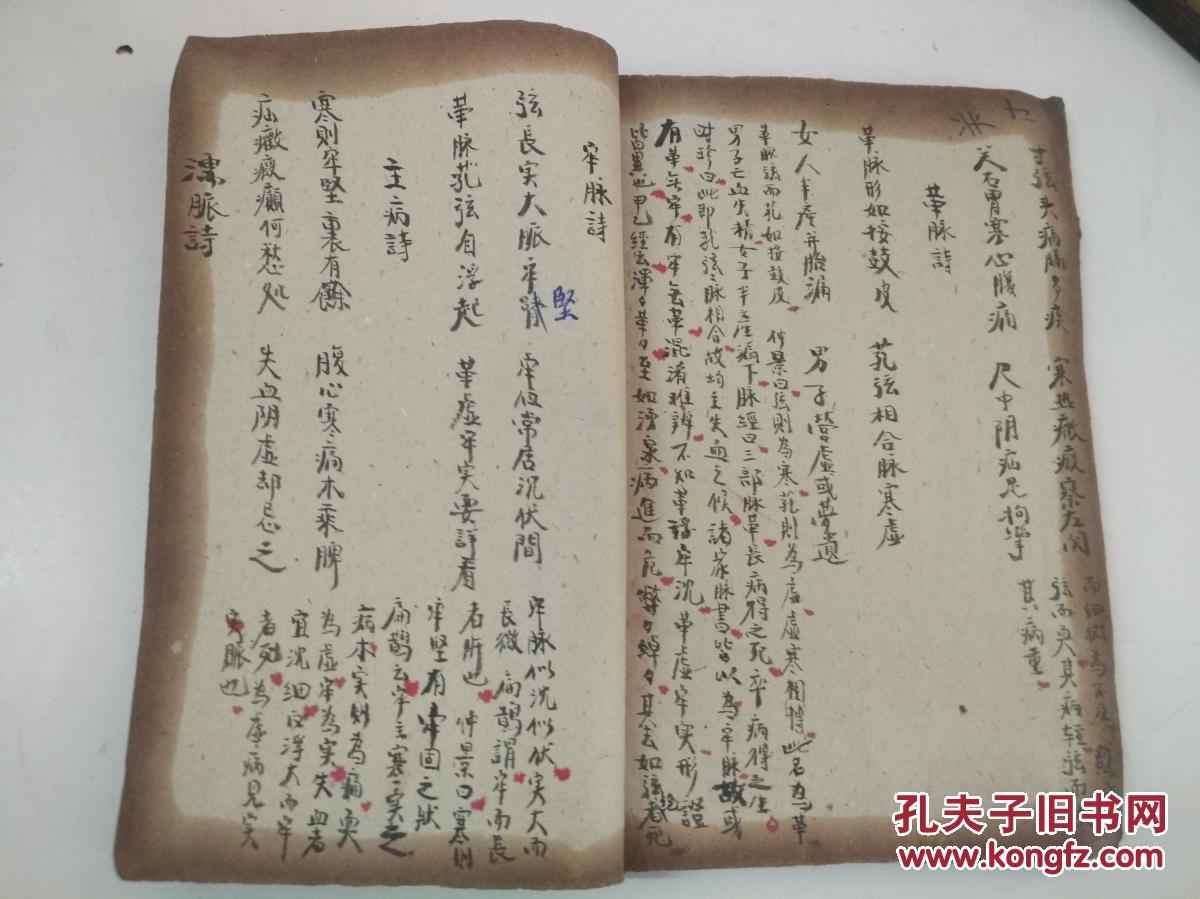 寸弦头病膈多痰 寒熱癥瘕察左関
关右胃寒心腹痛 尺中阴疝足拘挛
弦而 其病軽弦而
其病重
革脉詩
革脉形如按鼓皮 芤弦相合脉寒虚
女人半产并胎漏 男子营虚或夢遗
革脉弦而芤如按鼓皮 仲景曰弦則為寒芤則為虚虚寒相摶此名為革
男子亡血失精女子半产漏下脉經曰三部脉革長病得之死卒病得之生
时珍曰此即芤弦二脉相合故均主失血之候諸家脉書皆以為牢脉故或
有革无牢有牢无革混淆难辨不知革浮牢沉革虚牢实形證
皆異也甲乙經云渾々革々至如湧泉病進而危弊々綽々其去如弦絶者死
牢脉詩
弦長实大脈牢 堅 牢位常居沉伏間
革脉芤弦自浮起 革虚牢实要詳看
主病詩
寒則牢堅裏有餘 腹心寒痛木乘脾
疝癥瘕癲何愁处 失血阴虚却忌之
牢脉似沉似伏实大而
長微 扁鵲謂牢而長
者肝也 仲景曰寒則
牢堅有牢固之狀
扁鵲云牢主寒实之
病木实則為痛 革
為虚牢為实失血者
宜沉细反浮大而牢
者死為虚病見实
脉也
濡脈詩
孔夫子旧书网
www.kongfz.com